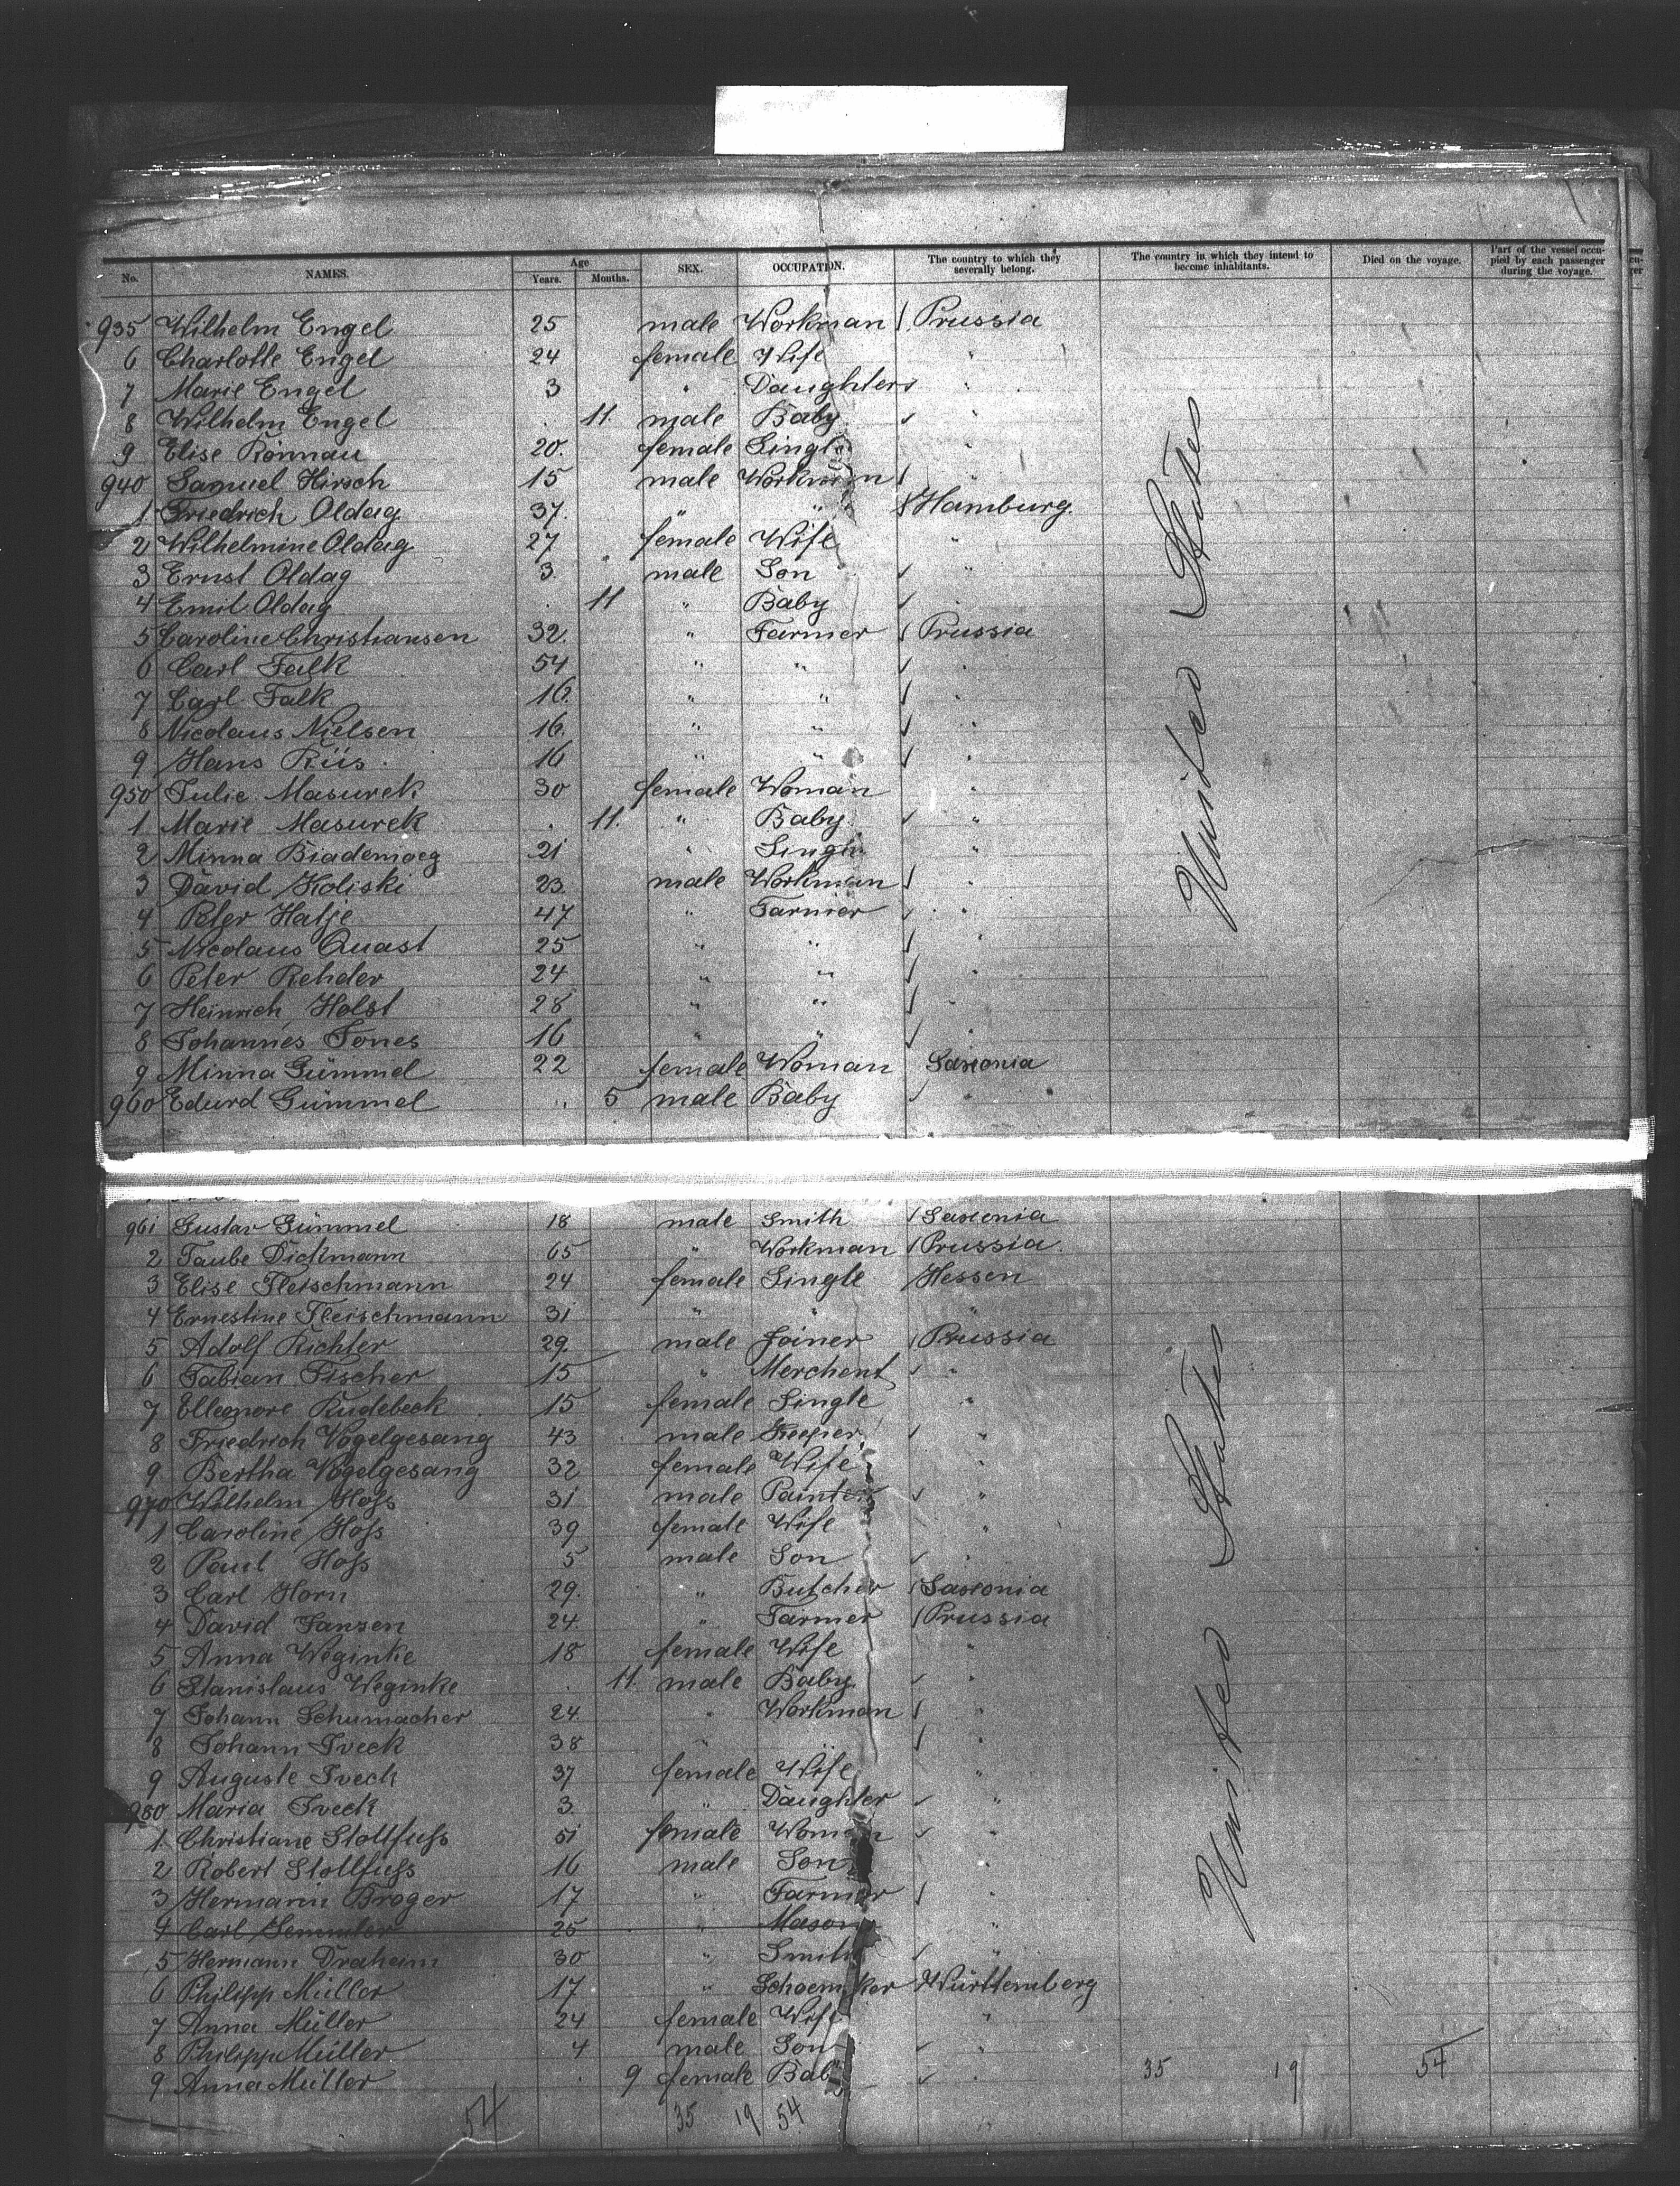 No. NAMES. Age Years. Months. SEX. OCCUPATION. The country to which they severally belong. The country in which they intend to become inhabitants. Died on the voyage. Part of the vessel occupied by each passenger during the voyage.
935 Wilhelm Engel 25 male Workman Prussia
6 Charlotte Engel 24 female Wife "
7 Marie Engel 3 " Daughter "
8 Wilhelm Engel 11 male Baby "
9 Elise Rönnau 20 female Single "
940 Samuel Hirsch 15 male Workman "
1 Friedrich Oldag 37 " " Hamburg
2 Wilhelmine Oldag 27 female Wife "
3 Ernst Oldag 3 male Son "
4 Emil Oldag 11 " Baby "
5 Caroline Christiansen 32 " Farmer Prussia
6 Carl Falk 54 " " "
7 Carl Falk 16 " " "
8 Nicolaus Nielsen 16 " " "
9 Hans Riis 16 " " "
950 Julie Masurek 30 female Woman "
1 Marie Masurek 11 " Baby "
2 Minna 21 " Single "
3 David Koliski 23 male Workman "
4 Peter Hatje 47 " Farmer "
5 Nicolaus Quast 25 " " "
6 Peter Rehder 24 " " "
7 Heinrich Holst 28 " " "
8 Johannes Jones 16 " " "
9 Minna Gümmel 22 female Woman Saxonia
960 Edurd Gümmel 5 male Baby "
United States
961 Gustav Gümmel 18 male Smith Saxonia
2 Taube Dickmann 65 " Workman Prussia
3 Elise Fleischmann 24 female Single Hessen
4 Ernestine Fleischmann 31 " " "
5 Adolf Richter 29 male Joiner Prussia
6 Fabian Fischer 15 " Merchent "
7 Elleonore Rudebeck 15 female Single "
8 Friedrich Vogelgesang 43 male Keeper "
9 Bertha Vogelgesang 32 female Wife "
970 Wilhelm Hoss 31 male Painter "
1 Caroline Hoss 39 female Wife "
2 Paul Hoss 5 male Son "
3 Carl Horn 29 " Butcher Saxonia
4 David Janzen 24 " Farmer Prussia
5 Anna Weginke 18 female Wife "
6 Stanislaus Weginke 11 male Baby "
7 Johann Schumacher 24 " Workman "
8 Johann Iveck 38 " " "
9 Auguste Iveck 37 female Wife "
980 Maria Iveck 3 " Daughter "
1 Christiane Stollfuss 51 female Woman "
2 Robert Stollfuss 16 male Son "
3 Hermann Broger 17 " Farmer "
4 Carl 25 " Mason "
5 Hermann Draheim 30 " Smith "
6 Philipp Müller 17 " Schoemaker Württemberg
7 Anna Müller 24 female Wife "
8 Philipp Müller 4 male Son "
9 Anna Müller 9 female Baby " 35 19 54
United States
54 35 19 54